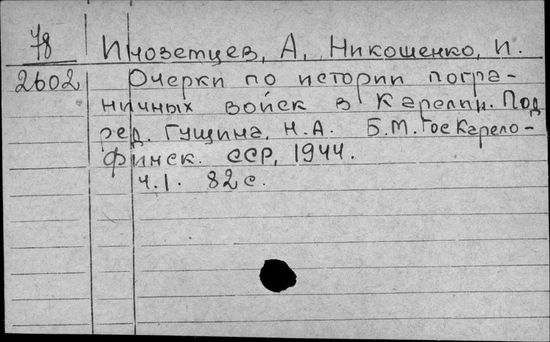 78 Иноземцев, А, Никошенко, И.
2602 Очерки по истории погра-
ничных войск в Карелии. Под
ред. Гущина, Н.А. Б.М. Гос Карело-
Финск. ССР, 1944.
ч.1. 82 с.